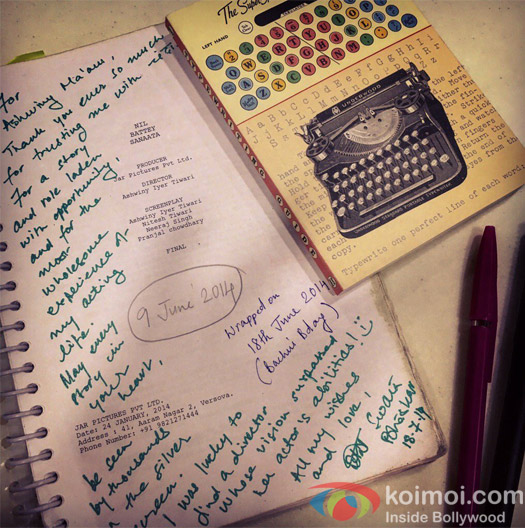 For
Ashwiny Ma'am,
Thank you ever so much
for trusting me with
For a story
and role laden
with opportunity,
and for the
most
wholesome
experience of
my acting
life.
May every
story in
your
heart,
be seen
by thousands
on the silver
screen!
I was lucky to
find a director
whose vision surpassed
her actor's abilities!
All my wishes
and love!
Swara
Bhaskar
18-7-14
NIL
BATTEY
SANAATA
PRODUCER
Jar Pictures Pvt Ltd.
DIRECTOR
Ashwiny Iyer Tiwari
SCREENPLAY
Ashwiny Iyer Tiwari
Nitesh Tiwari
Neeraj Singh
Pranjal Choudhary
FINAL
9 June 2014
Wrapped on
18th June 2014
JAR PICTURES PVT LTD.
Date: 24 JANUARY, 2014
Address : 41, Aaram Nagar 2, Versova.
Phone Number: +91 9821271444
The
LEFT HAND
UNDERWOOD
Typewrite one perfect line of each word
koimoi.com
Inside Bollywood